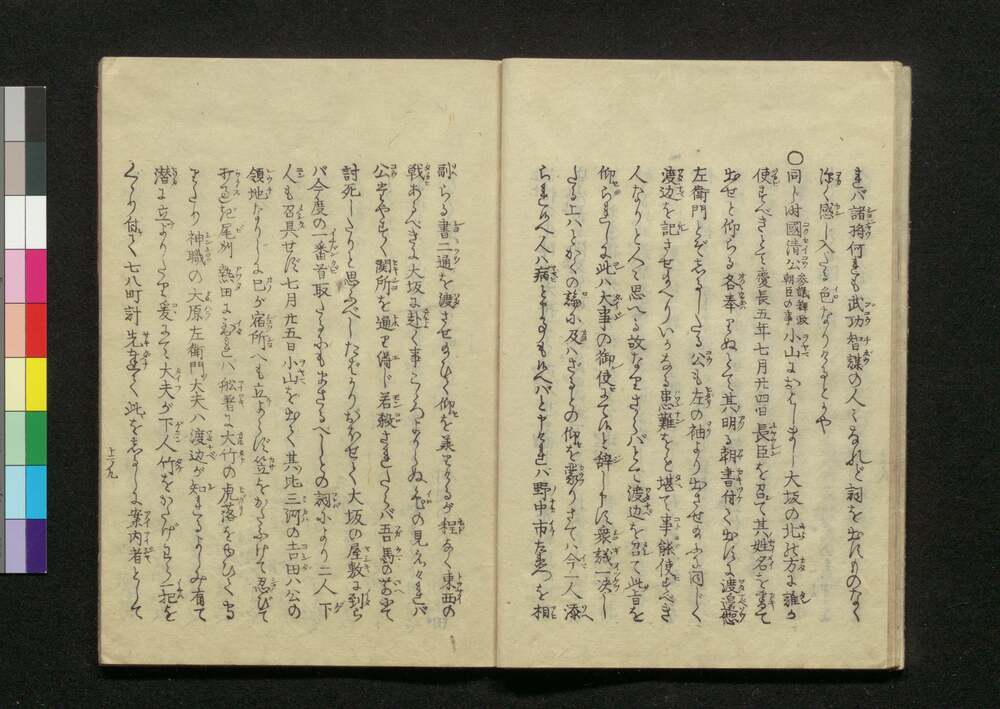 諸将何れも武功智謀の人々なれど詞を出すものなく
深く感じ入たる色なりけるとかや
〇同じ時國清公 参議輝政朝臣の事 小山におはしまし大坂の北の方に誰か
使すべきとて慶長五年七月廿四日長臣を召て其姓名を書て
出せと仰らる各奉りぬとて其明る朝書付て出すに渡邊惣
左衛門とぞしるしたる公も左の袖より出させ給ふに同じく
渡辺を記させ給へりいかなる患難をも堪て事能使すべき
人なりと人々思へる故なりさらバとて渡辺を召て此旨を
仰らるゝに此ハ大事の御使にて候と辞し申す衆議一決し
たる上ハとかくの論に及ハざるとの仰を蒙りさて今一人添
られ候へ一人ハ病と申すものも候へバと申けれバ野中市左衛門を相
副らる書二通を渡させ給ひて仰を承りけるが程なく東西の
戦あるべきに大坂に赴く事こころよからぬ色の見えけれバ
公やすやすく関所を過る事得じ若殺されたらバ吾馬の前にて
討死したりと思ふべしたばかりおほせて大坂の屋敷に到ら
バ今度の一番首取たるにもまさるべしとの詞により二人下
人も召具せず七月廿五日小山を出て其比三河の吉田ハ公の
領地なりしに己が宿所へも立よらず笠をかたふけて忍びて
打通を尾州熱田に
神職の大原左衛門大夫ハ渡辺が知れるよしみ有て
潜に立よりたり爰にて大夫が下人竹をかたげ
七八町計先 此を 案内者として
上ノ九